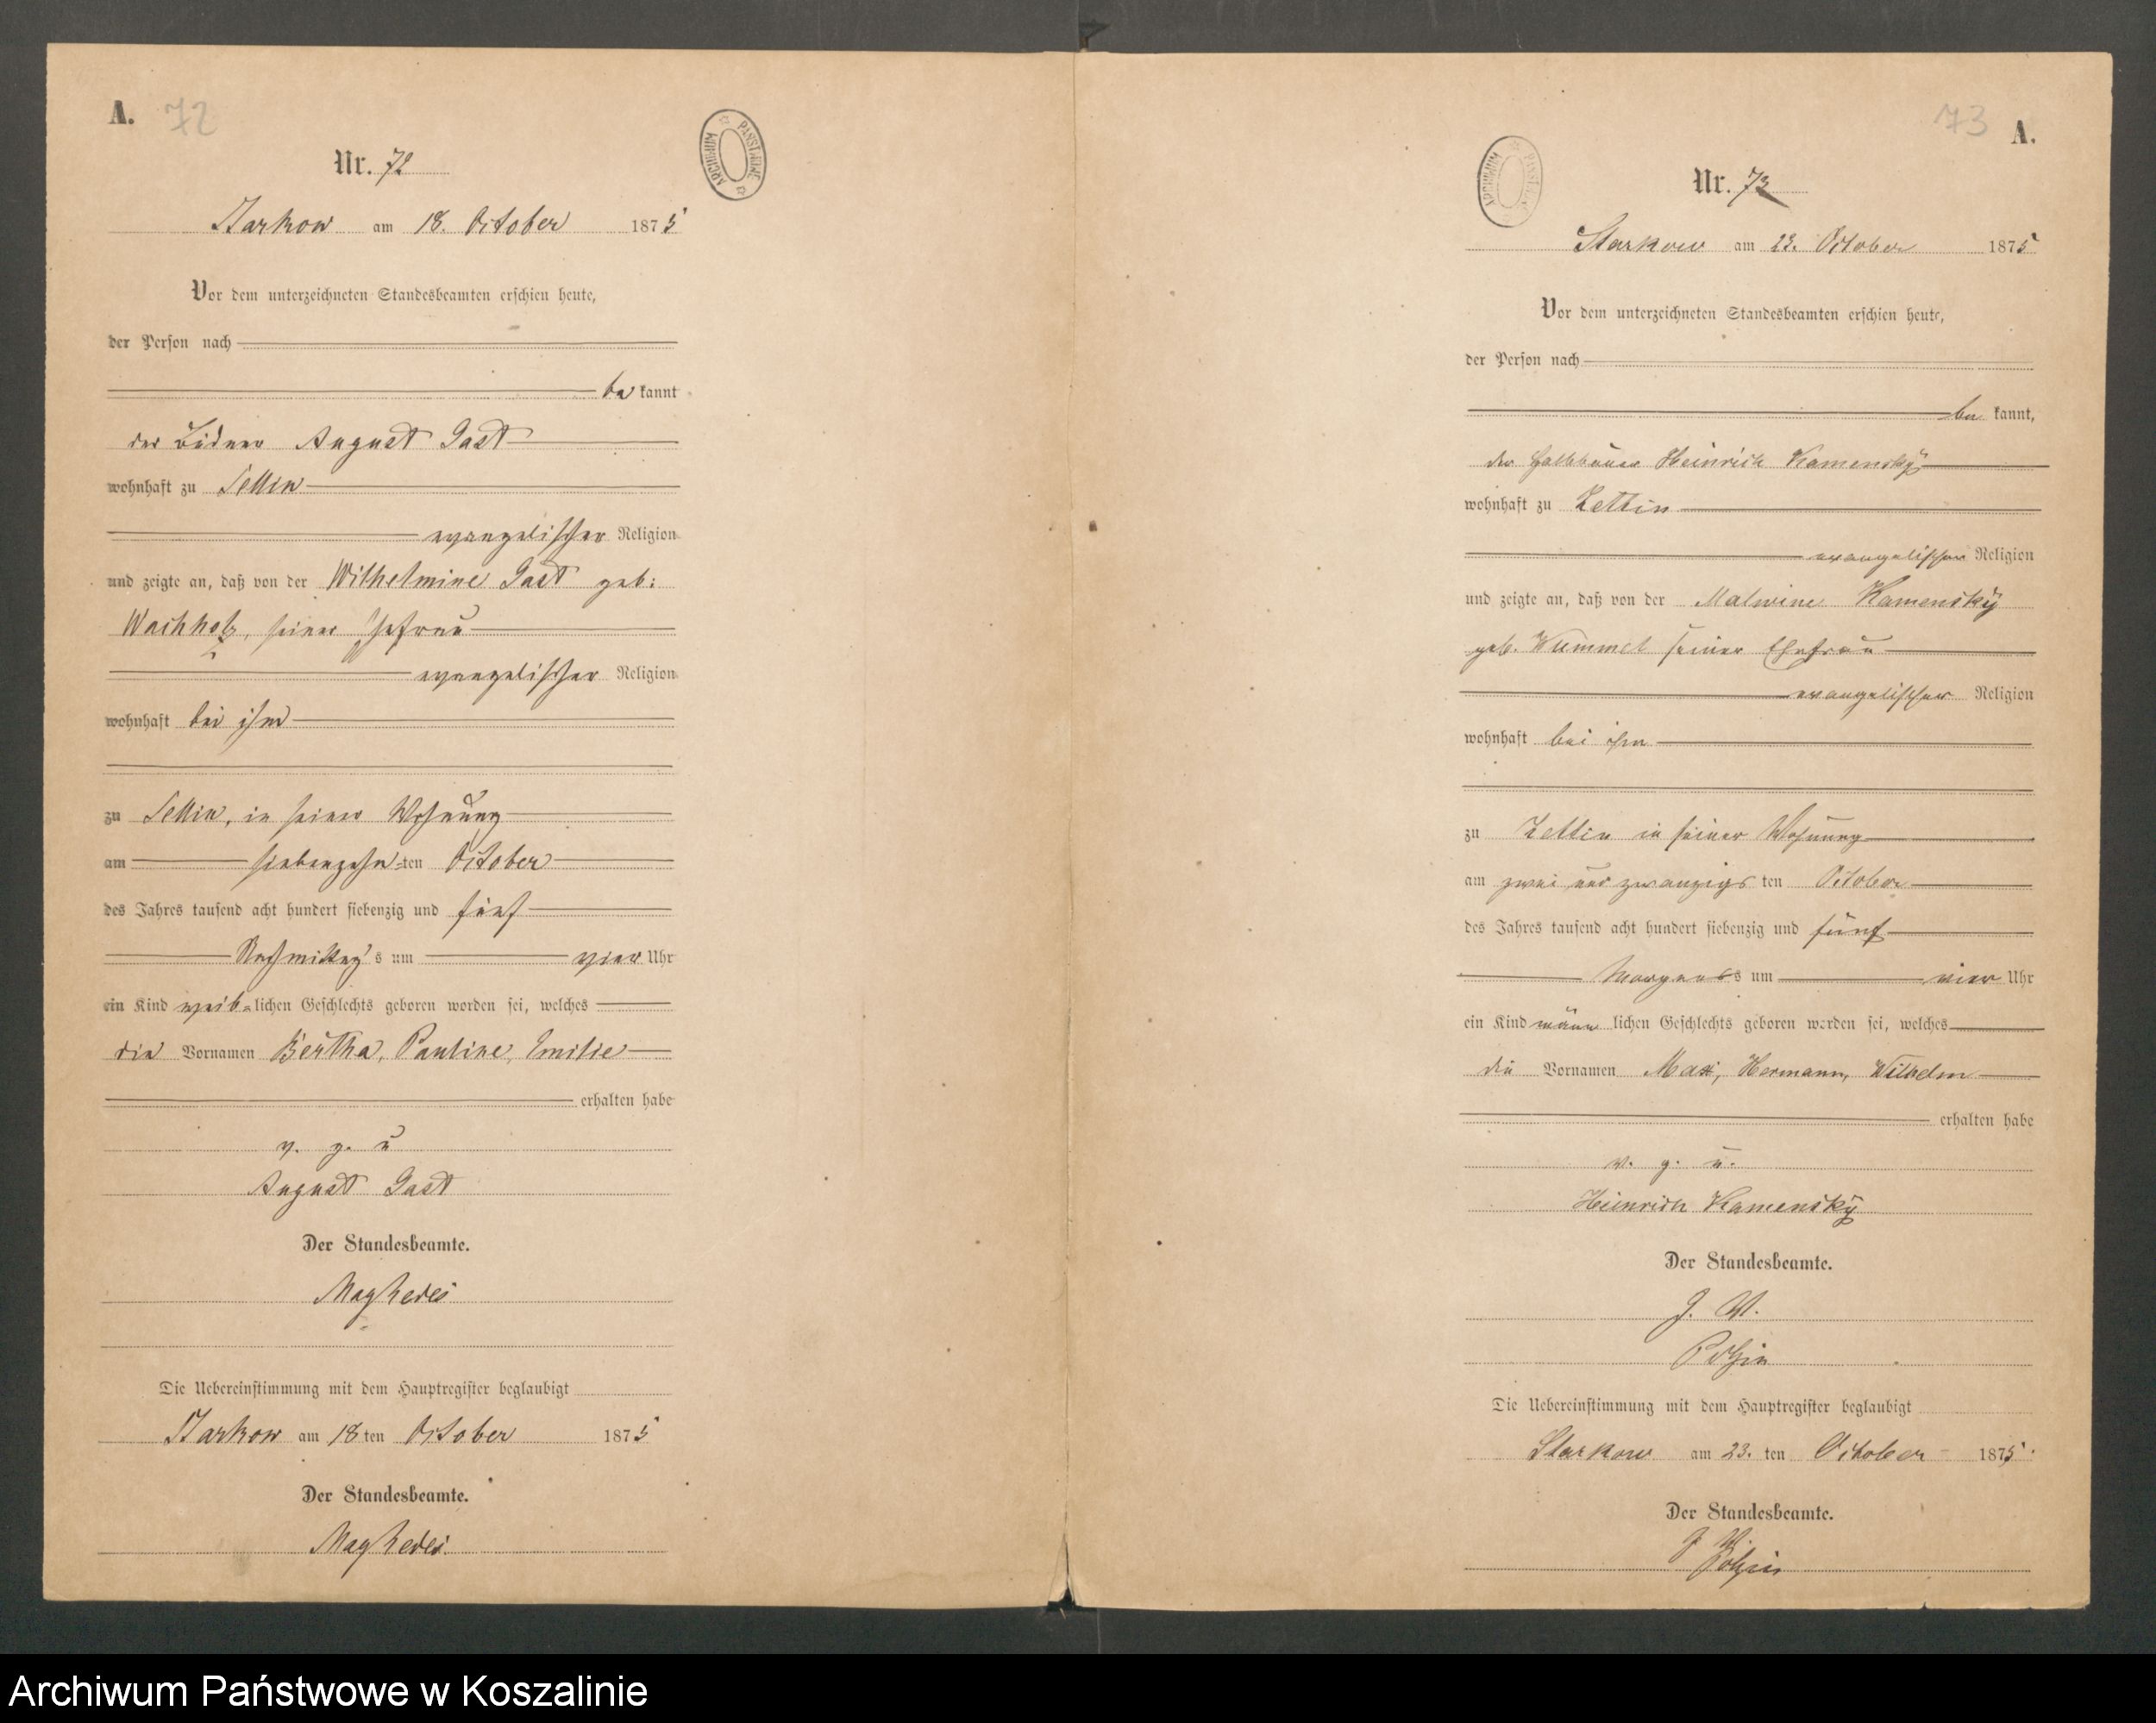 A. 72
Nr. 72
Starkow am 18. October 1875
Vor dem unterzeichneten Standesbeamten erschien heute,
der Person nach
be kannt
der Büdner August Gast
wohnhaft zu Sellin
evangelischer Religion
und zeigte an, daß von der Wilhelmine Gast geb:
Wachholz, seiner Ehefrau
evangelischer Religion
wohnhaft bei ihm
zu Sellin, in seiner Wohnung
am siebenzehn-ten October
des Jahres tausend acht hundert siebenzig und fünf
Nachmittag's um vier Uhr
ein Kind weib=lichen Geschlechts geboren worden sei, welches
die Vornamen Bertha, Pauline, Emilie
erhalten habe
v. g. u
August Gast
Der Standesbeamte.
Die Uebereinstimmung mit dem Hauptregister beglaubigt
Starkow am 18ten October 1875
Der Standesbeamte.
73 A.
Nr. 73
Starkow am 23. October 1875
Vor dem unterzeichneten Standesbeamten erschien heute,
der Person nach
be kannt,
der Halbbauer Heinrich Kamensky
wohnhaft zu Zettin
evangelischer Religion
und zeigte an, daß von der Malwine Kamensky
geb. Wummel seiner Ehefrau
evangelischer Religion
wohnhaft bei ihm
zu Zettin in seiner Wohnung
am zwei und zwanzigs ten October
des Jahres tausend acht hundert siebenzig und fünf
Morgens um vier Uhr
ein Kind männ lichen Geschlechts geboren worden sei, welches
die Vornamen Max, Hermann, Wilhelm
erhalten habe
v. g. u.
Heinrich Kamensky
Der Standesbeamte.
J. V.
Polzin
Die Uebereinstimmung mit dem Hauptregister beglaubigt
Starkow am 23. ten October 1875.
Der Standesbeamte.
J. V.
Polzin
ARCHIWUM PAŃSTWOWE
ARCHIWUM PAŃSTWOWE
Archiwum Państwowe w Koszalinie